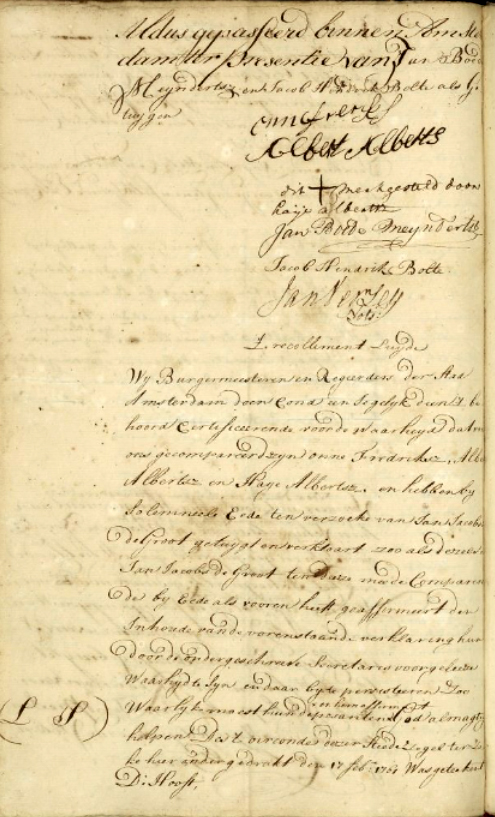 Aldus gepasseerd binnen Amster
dam ter presentie van Jan Boede
Meyndertsz en Jacob Hendrik Bolte als Ge
tuygen
onne frerickx
Albert Alberts
dit + merk gesteld door
haije alberts
Jan Boede Meyndertsz
Jacob Hendrik Bolte
Jan Verleij
Nots
't recollement Luyde
Wy Burgermeesteren en Regeerders der Stad
Amsterdam doen Cond een Iegelyk dien't be
hoord Certificeerende voor de waarheyd dat voor
ons gecompareerd zyn Onne Fredriksz, Albert
Albertsz en Haye Albertsz, en hebben by
Solemneele Eede ten verzoeke van Jan Jacobs
de Groot getuygt en verklaart zoo als dezelve
Jan Jacobs de Groot ten daze mede Comparee
de by Eede als vooren heeft geaffirmeert den
Inhoude van de vorenstaande verklaring hun
door de ondergeschreve Secretaris voorgeleeze
Waarhyd te Syn en daar by te persisteeren Zoo
Waarlyk moest hun deposanten en hem affirmant God almagtig
(L S) helpen Des t' oirconden dezer Stede Zegel ter Za
ke hier onder gedrukt den 17 feb: 1761 Was geteekent
D: Hooft,